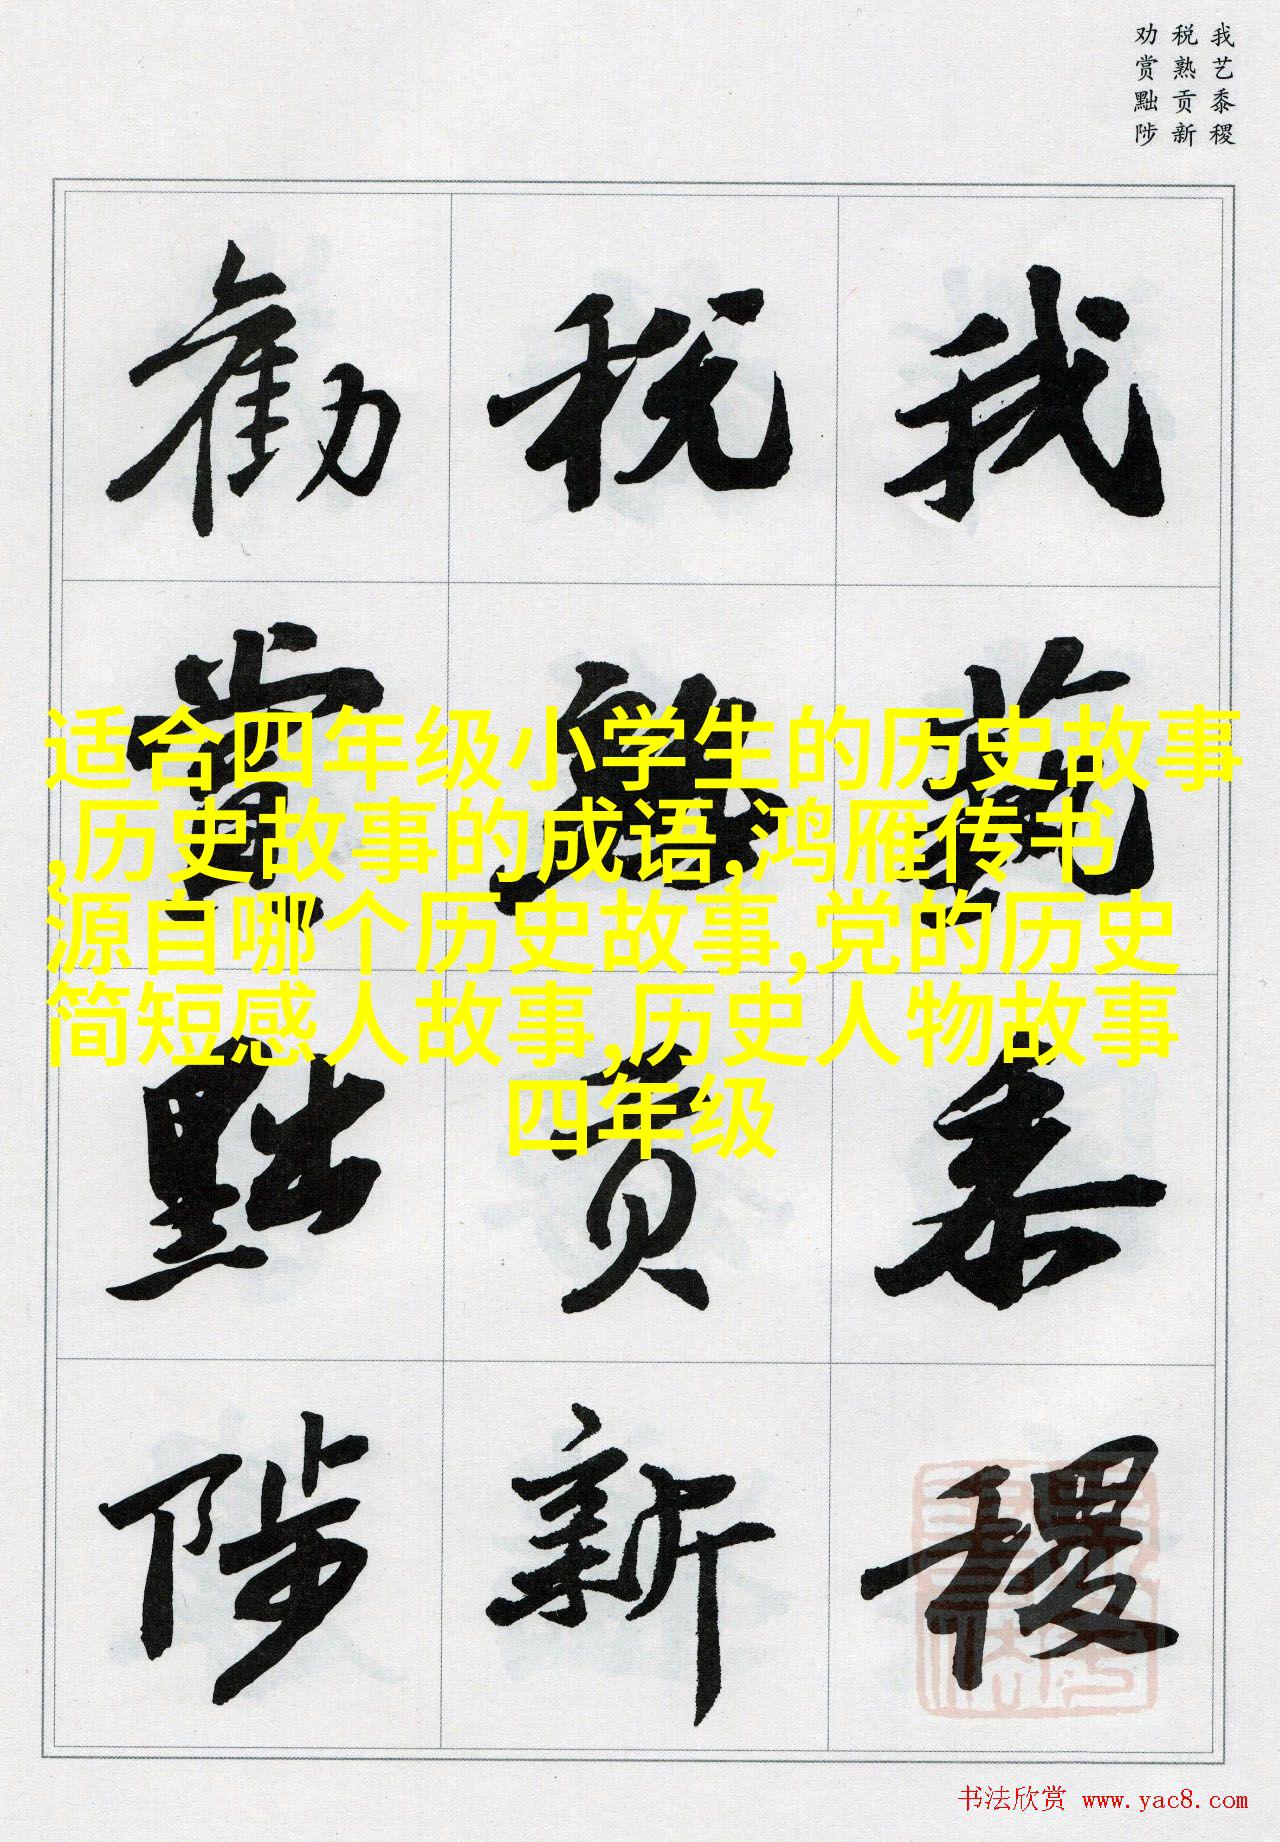 我艺黍稷
税熟贡新
劝赏黜陟
我藝黍稷
税熟贡新
勸賞黜陟
适合四年级小学生的历史故事
,历史故事的成语,鸿雁传书
源自哪个历史故事,党的历史
简短感人故事,历史人物故事
四年级
书法欣赏 www.yac8.com